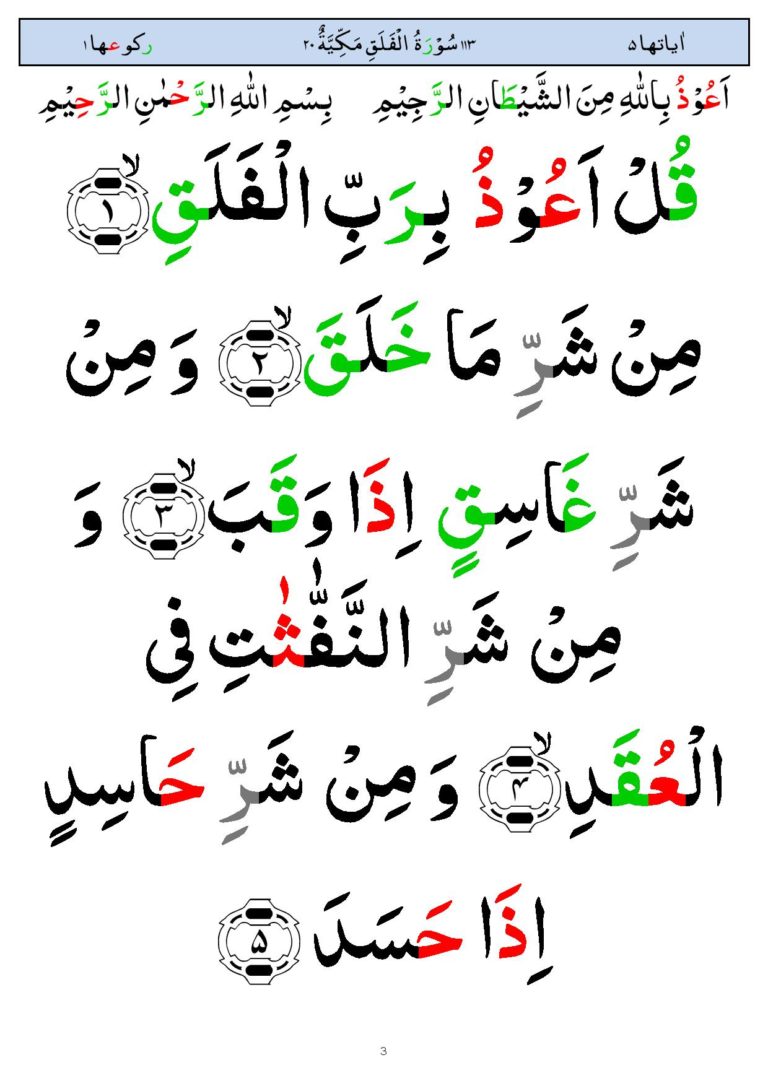 اٰیاتها ۵ ۱۱۳ سُوْرَةُ الْفَلَقِ مَكِّيَّةٌ ۲۰ ركوعها ۱
اَعُوْذُ بِاللهِ مِنَ الشَّيْطَانِ الرَّجِيْمِ بِسْمِ اللهِ الرَّحْمٰنِ الرَّحِيْمِ
قُلْ اَعُوْذُ بِرَبِّ الْفَلَقِ ۙ ۱
مِنْ شَرِّ مَا خَلَقَ ۙ ۲ وَ مِنْ
شَرِّ غَاسِقٍ اِذَا وَقَبَ ۙ ۳ وَ
مِنْ شَرِّ النَّفّٰثٰتِ فِی
الْعُقَدِ ۙ ۴ وَ مِنْ شَرِّ حَاسِدٍ
اِذَا حَسَدَ ۵
3